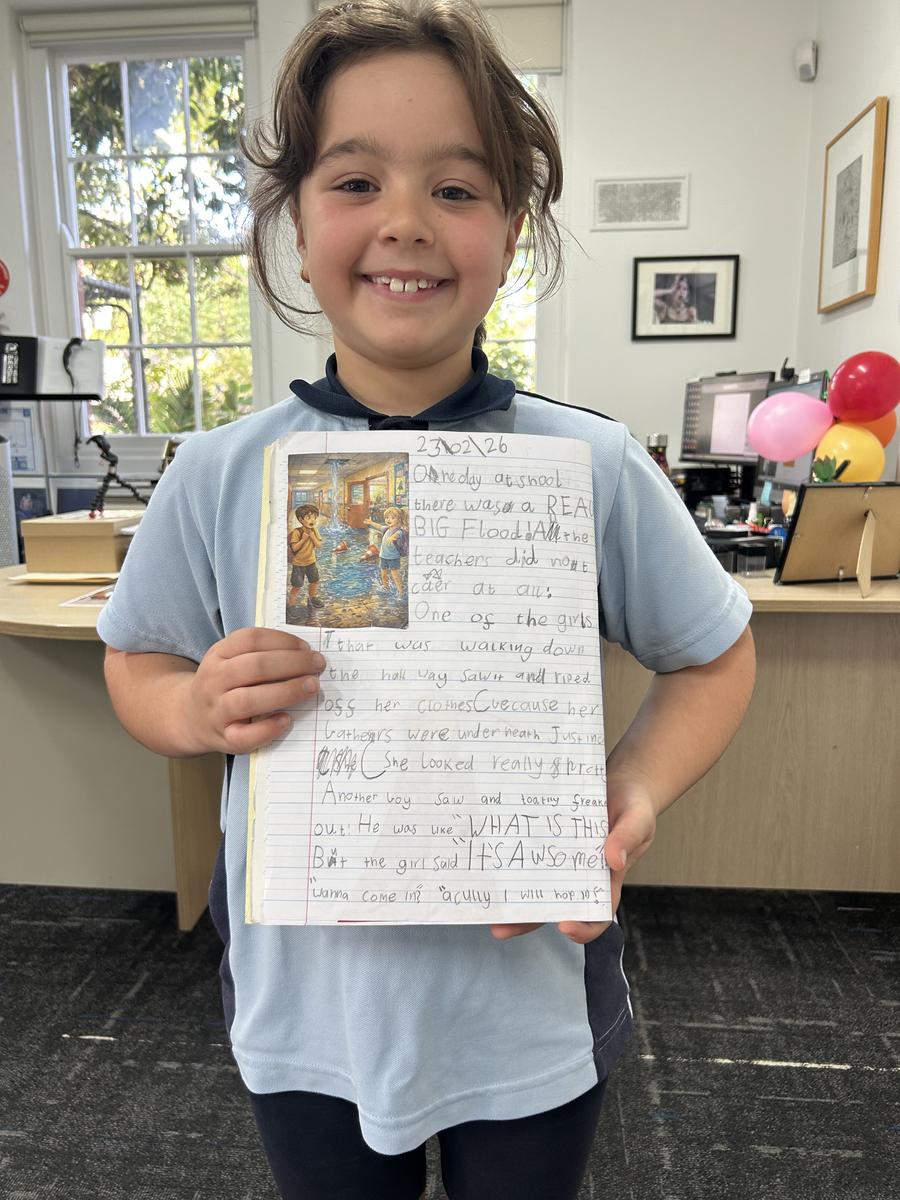 23\02\26
Oneday at shool
there was a REAL
BIG Flood! All the
teachers did not
caer at all!
One of the girls
that was walking down
the hall way saw it and riped
off her clothes Cuecause her
bathers were under neath Just inc
She Looked really prett
Another boy saw and toatlly freake
out! He was like "WHAT IS THIS
But the girl said "It'S AWSome"!
"wanna come in?" "acully I will hop in!"